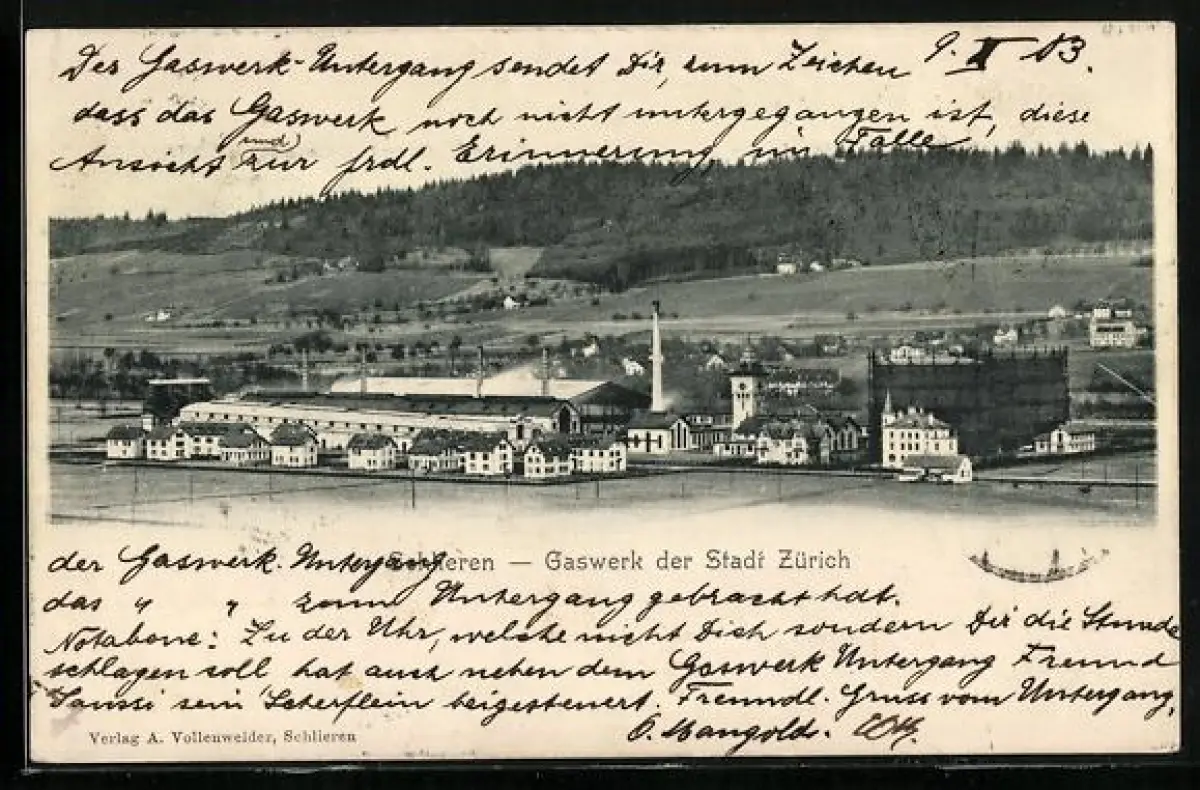 Der Gaswerk-Untergang sendet Dir, zum Zeichen 9. II 03.
dass das Gaswerk noch nicht untergegangen ist, diese
Ansicht und zur frdl. Erinnerung, im Falle
der Gaswerk-Untergang
Schlieren — Gaswerk der Stadt Zürich
das " " zum Untergang gebracht hat.
Notabene: Zu der Uhr, welche nicht Dich sondern Dir die Stunde
schlagen soll hat auch neben dem Gaswerk Untergang Freund
Saussi sein Scherflein beigesteuert. Freundl. Gruss vom Untergang,
O. Mangold.
Verlag A. Vollenweider, Schlieren